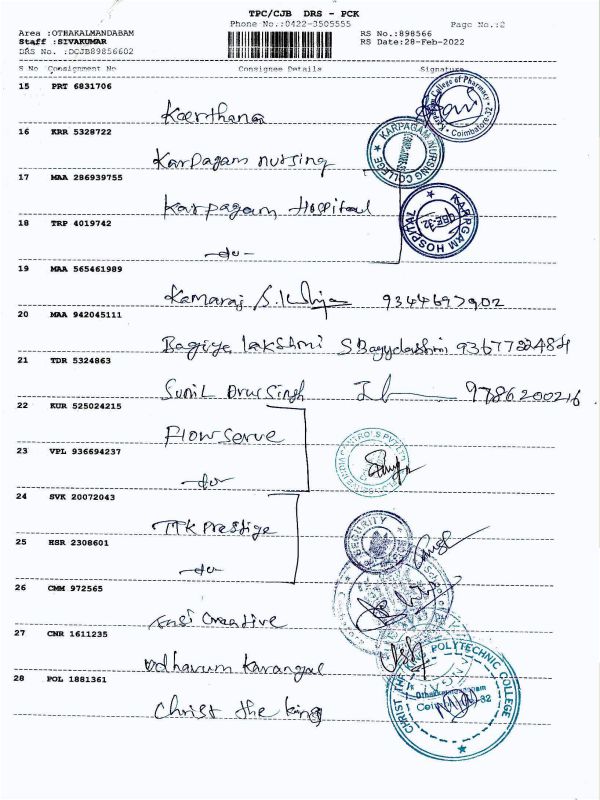 TPC/CJB DRS - PCK
Phone No.:0422-3505555
Page No.:2
Area :OTHAKALMANDABAM
RS No.:898566
Staff :SIVAKUMAR
RS Date:28-Feb-2022
DRS No. :DCJB89856602
S No Consignment No Consignee Details Signature
15 PRT 6831706
Keerthana
College of Pharmacy
Coimbatore-32
16 KRR 5328722
Karpagam nursing
KARPAGAM NURSING COLLEGE
17 MAA 286939755
Karpagam Hospital
KARPAGAM HOSPITAL
CBE-32
18 TRP 4019742
-do-
19 MAA 565461989
Kamaraj
20 MAA 942045111
Bagiya lakshmi
21 TDR 5324863
Sunil
9786200216
22 KUR 525024215
Flowserve
23 VPL 936694237
-do-
24 SVK 20072043
TTK Prestige
SECURITY
25 HSR 2308601
-do-
26 CMM 972565
Creative
27 CNR 1611235
Udhavum Karangal
28 POL 1881361
Christ the king
CHRIST THE POLYTECHNIC COLLEGE
Othakkalmandapam
Coimbatore 32